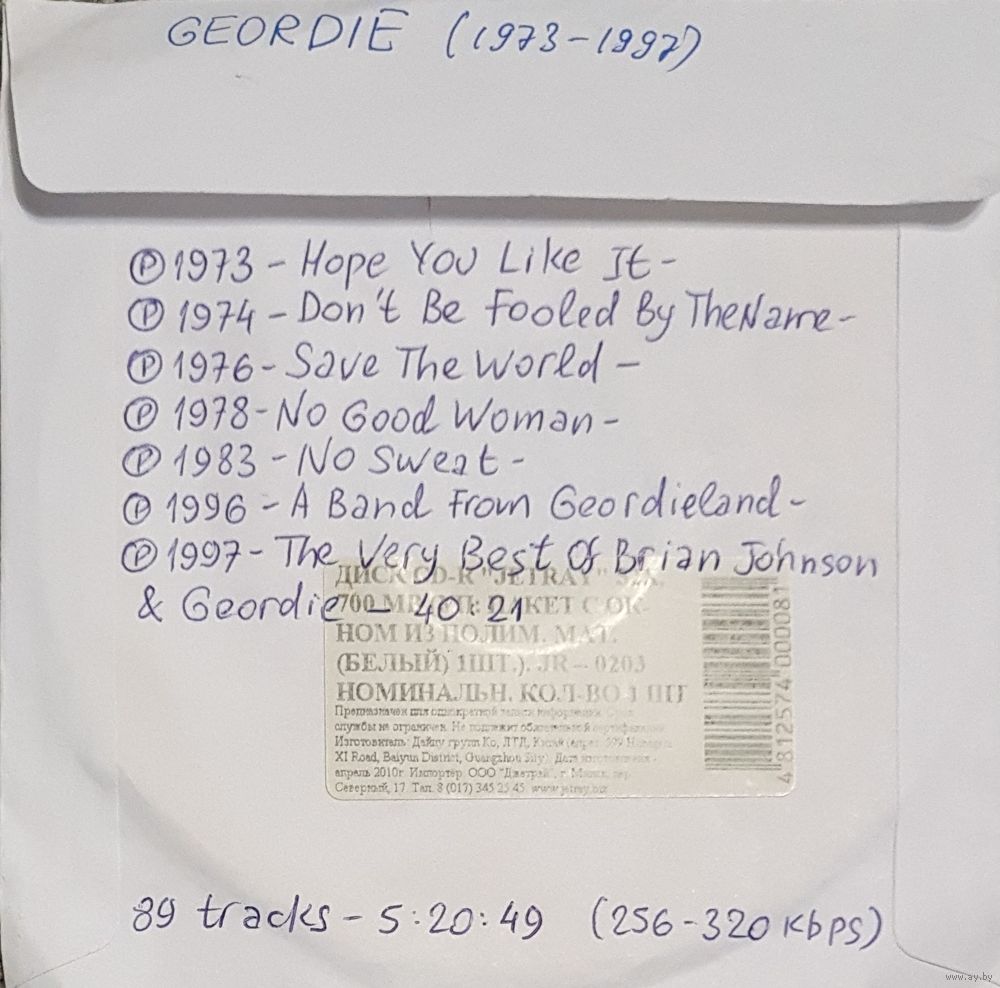 GEORDIE (1973-1997)
Ⓟ1973 - Hope You Like It -
Ⓟ 1974 - Don't Be Fooled By The Name -
Ⓟ 1976 - Save The World -
Ⓟ 1978 - No Good Woman -
Ⓟ 1983 - No Sweat -
Ⓟ 1996 - A Band From Geordieland -
Ⓟ 1997 - The Very Best Of Brian Johnson
& Geordie - 40:21
ДИСК CD-R "JETRAY" 52X.
700 ПАКЕТ С ОК-
НОМ ИЗ ПОЛИМ. МАТ.
(БЕЛЫЙ) 1ШТ.). JR – 0203
НОМИНАЛЬН. КОЛ-ВО 1 ШТ
Предназначен для однократной записи информации. Срок
службы не ограничен. Не подлежит обязательной сертификации.
Изготовитель: Китай
XI Road, Baiyun District, Guangzhou Дата изготовления -
апрель 2010г. Импортер: ООО "Джетрэй", г. Минск, пер.
Северный, 17. Тел. 8 (017) 345 25 45. www.jetray.biz
4 812574 000081
89 tracks - 5:20:49 (256-320 kbps)
www.ay.by